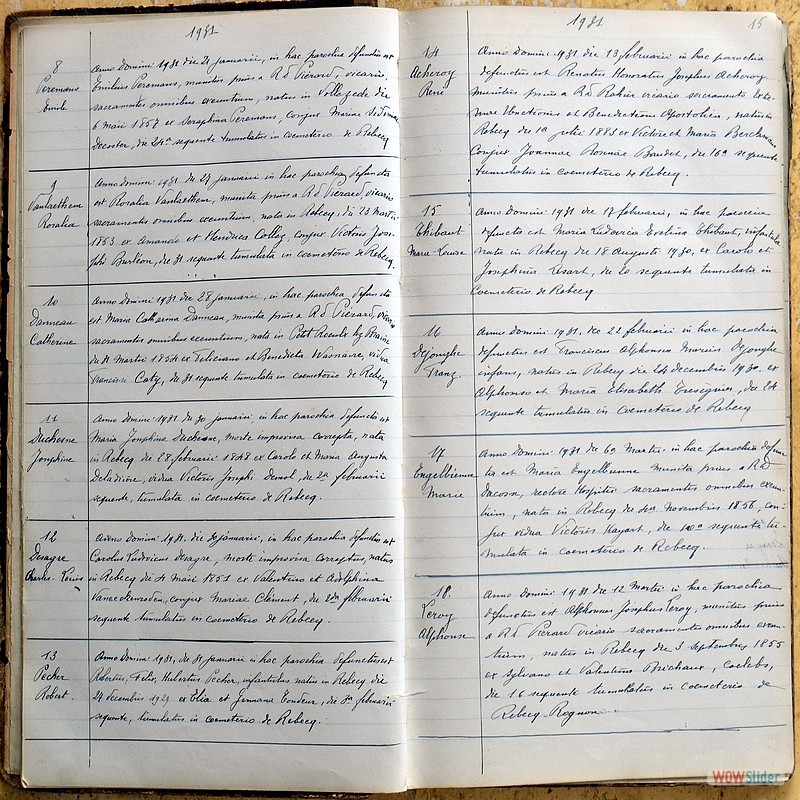 1931
8
Peremans
Emile
Anno Domini 1931 die 21 januarii, in hac parochia defunctus est
Emilius Peremans, munitus prius a Rd Piérard, vicario,
sacramentis omnibus exeuntium, natus in Vollezede die
6 Maii 1857 ex Seraphina Peremans, conjux Mariae
Decoster, die 24a sequente tumulatus in coemeterio de Rebecq
9
Vanlaethem
Rosalia
Anno Domini 1931 die 27 januarii in hac parochia defuncta
est Rosalia Vanlaethem, munita prius a Rd Piérard, vicario
sacramentis omnibus exeuntium, nata in Rebecq, die 23 Martii
1853 ex Amando et Henrica Collez, conjux Victoris Jose-
phi Burllon, die 31 sequente tumulata in coemeterio de Rebecq.
10
Danneau
Catherine
Anno Domini 1931 die 28 januarii, in hac parochia, defuncta
est Maria Catharina Danneau, munita prius a Rd Piérard, vicario
sacramentis omnibus exeuntium, nata in Petit Roeulx lez Braine
die 11 Martii 1854 ex Feliciano et Benedicta Wasnaire, vidua
Francisci Caty, die 31 sequente tumulata in coemeterio de Rebecq
11
Duchesne
Joséphine
Anno Domini 1931 die 30 januarii, in hac parochia defuncta est
Maria Josephina Duchesne, morte improvisa correpta, nata
in Rebecq die 28 februarii 1848 ex Carolo et Maria Augusta
Deladrière, vidua Victoris Josephi Denol, die 2a februarii
sequente, tumulata in coemeterio de Rebecq.
12
Desagre
Charles-Louis
Anno Domini 1931, die januarii, in hac parochia defunctus est
Carolus Ludovicus Desagre, morte improvisa correptus, natus
in Rebecq die 4 Maii 1851 ex Valentino et Adolphina
conjux Mariae Clément, die 2da februarii
sequente tumulatus in coemeterio de Rebecq.
13
Pecher
Robert
Anno Domini 1931, die 31 januarii in hac parochia defunctus est
Robertus, Felix, Hubertus Pecher, infantulus natus in Rebecq die
24 decembris 1929 ex Elia et Germana Tondeur, die 3a februarii
sequente, tumulatus in coemeterio de Rebecq.
1931
15
14
Acheroy
René
Anno Domini 1931 die 13 februarii in hac parochia
defunctus est Renatus Honoratus Josephus Acheroy
munitus prius a Rd vicario sacramento Extre-
mae Unctionis et Benedictione Apostolica, natus in
Rebecq die 1a julii 1883 ex Victore et Maria Berckmans
conjux Joannae Baudet, die 16a sequente
tumulatus in coemeterio de Rebecq.
15
Thibaut
Marie-Louise
Anno Domini 1931 die 17 februarii, in hac parochia
defuncta est Maria Ludovica Evelina Thibaut, infantula
nata in Rebecq die 18 Augusti 1930, ex Carolo et
Josephina Lisart, die 20 sequente tumulata in
coemeterio de Rebecq
16
Dejonghe
Franz
Anno Domini 1931, die 22 februarii in hac parochia
defunctus est Franciscus Alphonsus Marius Dejonghe
infans, natus in Rebecq die 24 decembris 1930, ex
Alphonso et Maria Elisabeth Tresignies, die 24
sequente tumulatus in coemeterio de Rebecq
17
Engelbienne
Marie
Anno Domini 1931 die 6a Martii in hac parochia defunc-
ta est Maria Engelbienne munita prius a Rd
Dacosse, rectore Hospitii sacramentis omnibus exeun-
tium, nata in Rebecq die 4a Novembris 1856, con-
jux vidua Victoris Hayart, die 10a sequente tu-
mulata in coemeterio de Rebecq.
18
Leroy
Alphonse
Anno Domini 1931 die 12 Martii in hac parochia
defunctus est Alphonsus Josephus Leroy, munitus prius
a Rd Piérard vicario sacramentis omnibus exeun-
tium, natus in Rebecq die 3 septembris 1855
ex Sylvano et Valentina Brichaux, coelebs,
die 16 sequente tumulatus in coemeterio de
Rebecq-Rognon
WOWSlider